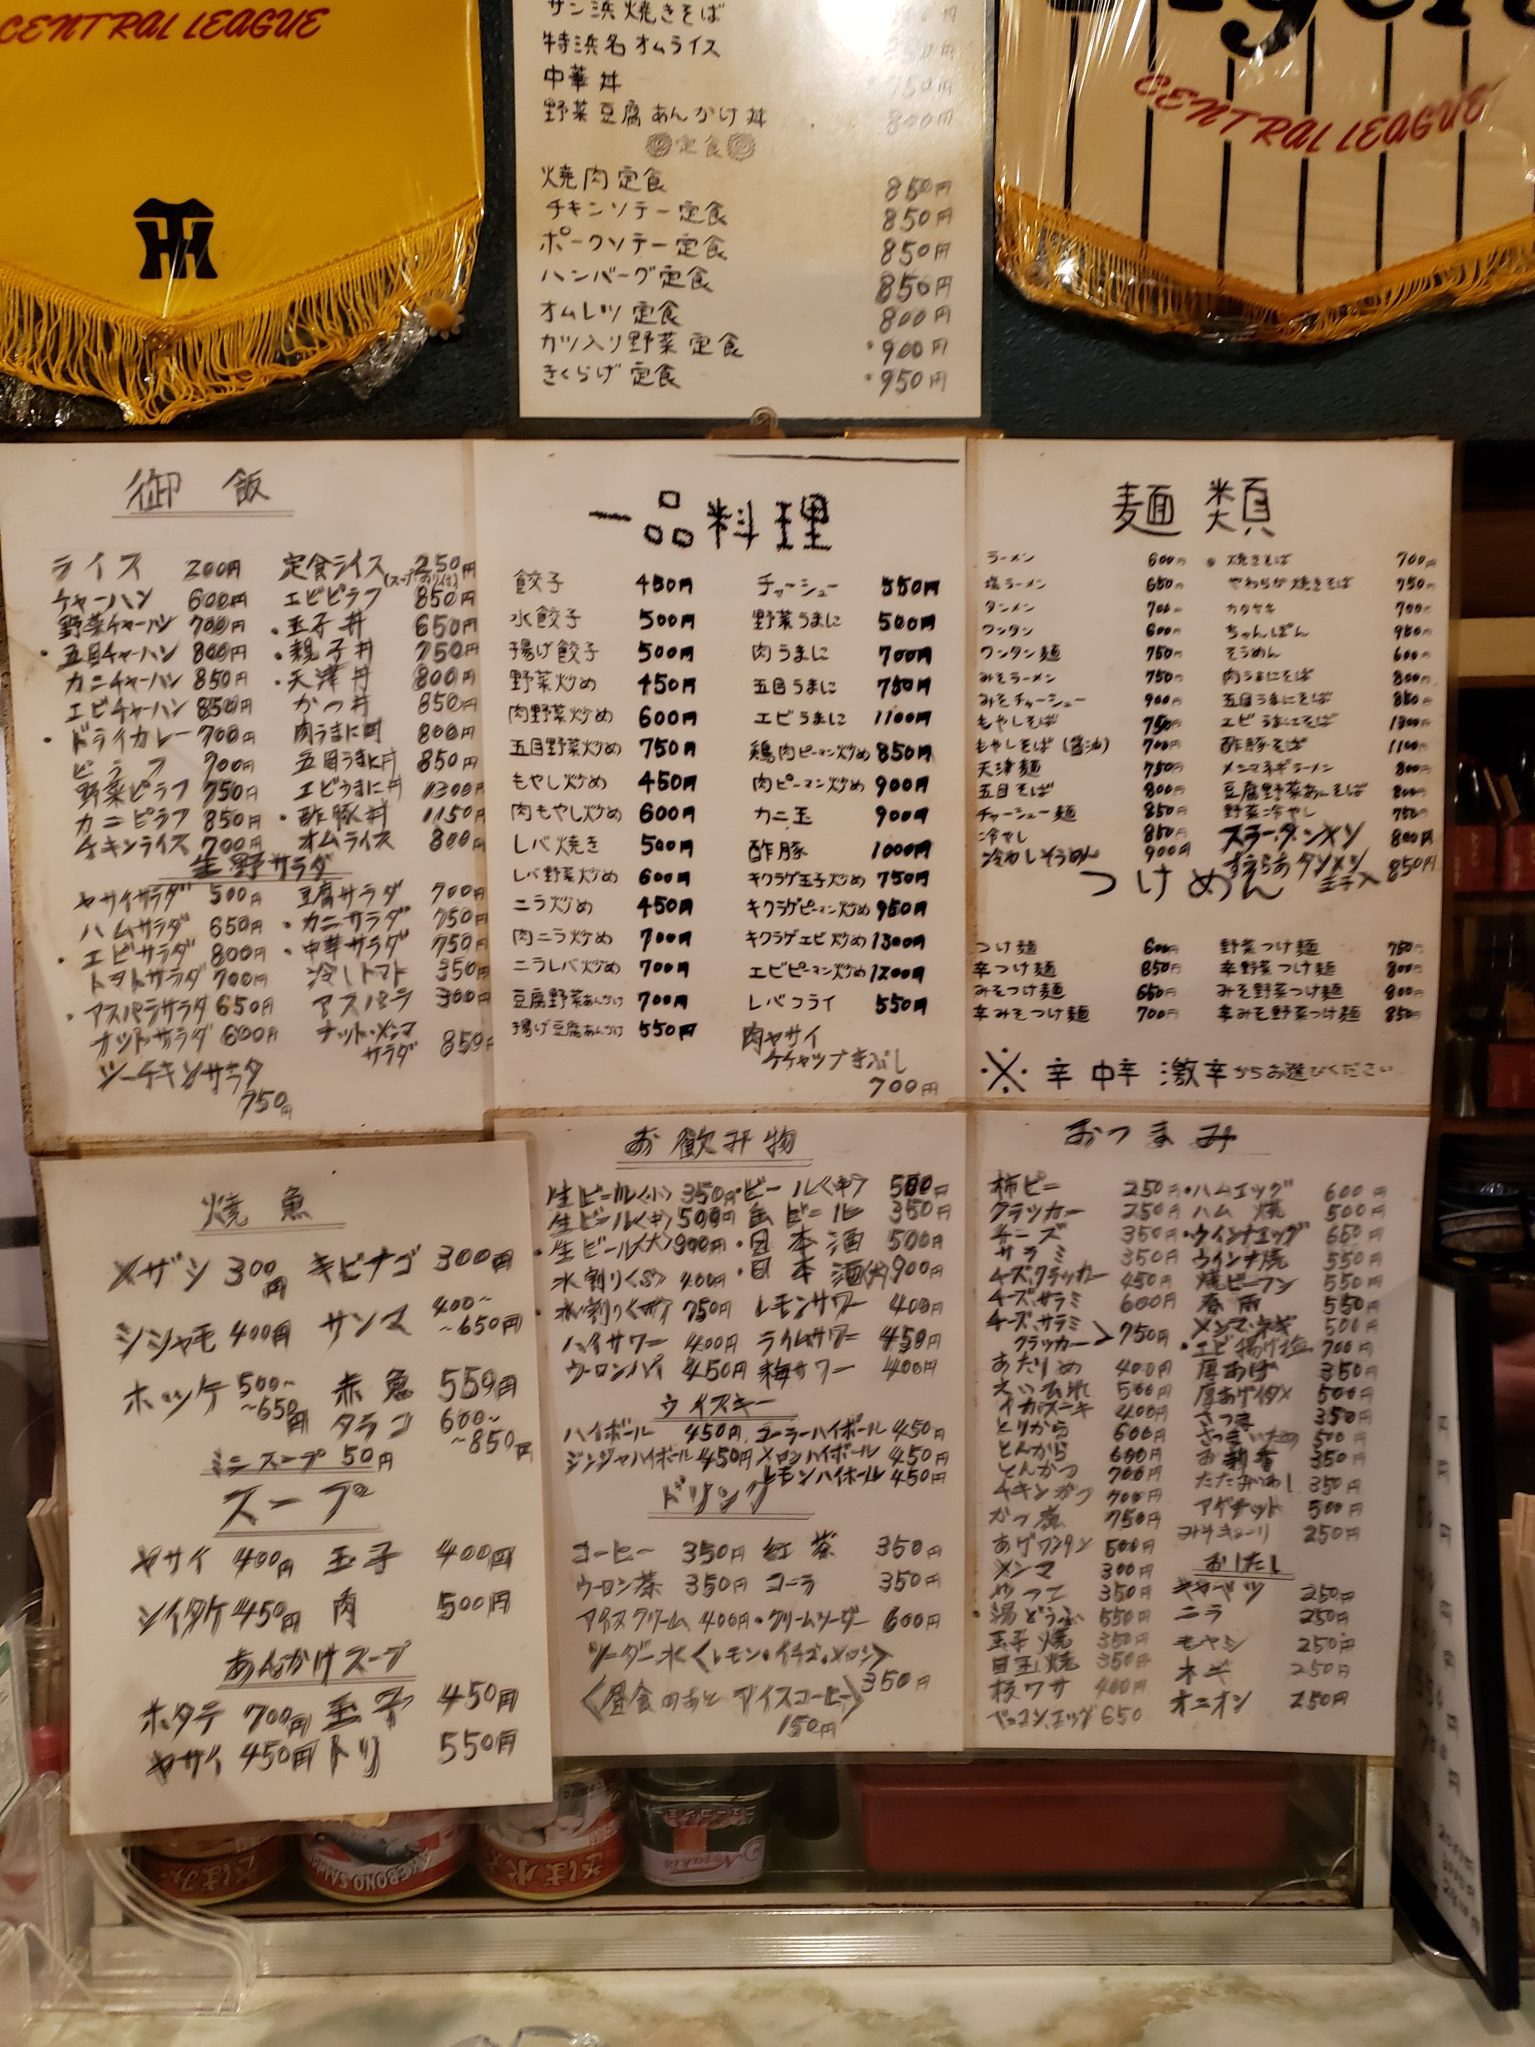 CENTRAL LEAGUE
サン浜焼きそば
特浜名オムライス
中華丼 750円
野菜豆腐あんかけ丼 800円
定食
焼肉定食 850円
チキンソテー定食 850円
ポークソテー定食 850円
ハンバーグ定食 850円
オムレツ定食 800円
カツ入り野菜定食 ・900円
きくらげ定食 ・950円
CENTRAL LEAGUE
御飯
ライス 200円 定食ライス 250円
チャーハン 600円 エビピラフ 850円
野菜チャーハン 700円 ・玉子丼 650円
・五目チャーハン 800円 ・親子丼 750円
カニチャーハン 850円 ・天津丼 800円
エビチャーハン 850円 かつ丼 850円
・ドライカレー 700円 肉うまに丼 800円
ピラフ 700円 五目うまに丼 850円
野菜ピラフ 750円 エビうまに丼 1300円
カニピラフ 850円 ・酢豚丼 1150円
チキンライス 700円 オムライス 800円
生野サラダ
ヤサイサラダ 500円 豆腐サラダ 700円
ハムサラダ 650円 ・カニサラダ 750円
・エビサラダ 800円 ・中華サラダ 750円
トマトサラダ 700円 冷しトマト 350円
・アスパラサラダ 650円 アスパラ 300円
ナットサラダ 600円 ナット・メンマサラダ 850円
シーチキンサラダ
750円
一品料理
餃子 450円 チャーシュー 550円
水餃子 500円 野菜うまに 500円
揚げ餃子 500円 肉うまに 700円
野菜炒め 450円 五目うまに 750円
肉野菜炒め 600円 エビうまに 1100円
五目野菜炒め 750円 鶏肉ピーマン炒め 850円
もやし炒め 450円 肉ピーマン炒め 900円
肉もやし炒め 600円 カニ玉 900円
レバ焼き 500円 酢豚 1000円
レバ野菜炒め 600円 キクラゲ玉子炒め 750円
ニラ炒め 450円 キクラゲピーマン炒め 950円
肉ニラ炒め 700円 キクラゲエビ炒め 1300円
ニラレバ炒め 700円 エビピーマン炒め 1200円
豆腐野菜あんかけ 700円 レバフライ 550円
揚げ豆腐あんかけ 550円 肉ヤサイ
ケチャップまぶし
700円
麺類
ラーメン 600円 焼きそば 700円
塩ラーメン 650円 やわらか焼きそば 750円
タンメン 700円 カタヤキ 700円
ワンタン 600円 ちゃんぽん 950円
ワンタン麺 750円 そうめん 600円
みそラーメン 750円 肉うまにそば 800円
みそチャーシュー 900円 五目うまにそば 850円
もやしそば 750円 エビうまにそば 1300円
もやしそば(醤油) 700円 酢豚そば 1100円
天津麺 750円 メンマネギラーメン 800円
五目そば 800円 豆腐野菜あんそば 800円
チャーシュー麺 850円 野菜冷やし 750円
冷やし 850円 スーラータンメン 800円
冷やしそうめん 900円 すうらあタンメン玉子入 850円
つけめん
つけ麺 600円 野菜つけ麺 750円
辛つけ麺 850円 辛野菜つけ麺 800円
みそつけ麺 650円 みそ野菜つけ麺 800円
辛みそつけ麺 700円 辛みそ野菜つけ麺 850円
※辛 中辛 激辛からお選びください
焼魚
メザシ 300円 キビナゴ 300円
シシャモ 400円 サンマ 400〜〜650円
ホッケ 500〜〜650円 赤魚 550円
タラコ 600〜〜850円
ミニスープ 50円
スープ
ヤサイ 400円 玉子 400円
シイタケ 450円 肉 500円
あんかけスープ
ホタテ 700円 玉子 450円
ヤサイ 450円 トリ 550円
お飲み物
生ビール<小> 350円 ・ビール<中> 500円
生ビール<中> 500円 缶ビール 350円
・生ビール<大> 900円 ・日本酒 500円
水割り 400円 ・日本酒(大) 900円
・水割り 750円 レモンサワー 400円
ハイサワー 400円 ライムサワー 450円
ウーロンハイ 450円 梅サワー 400円
ウイスキー
ハイボール 450円 コーラーハイボール 450円
ジンジャハイボール 450円 メロンハイボール 450円
レモンハイボール 450円
ドリンク
コーヒー 350円 紅茶 350円
ウーロン茶 350円 コーラ 350円
アイスクリーム 400円 ・クリームソーダー 600円
ソーダー水<レモン・イチゴ・メロン> 350円
<昼食のあと アイスコーヒー>
150円
おつまみ
柿ピー 250円 ・ハムエッグ 600円
クラッカー 250円 ハム焼 500円
チーズ 350円 ・ウインナエッグ 650円
サラミ 350円 ウインナ焼 550円
チーズ、クラッカー 450円 焼ビーフン 550円
チーズ、サラミ 600円 春雨 550円
チーズ、サラミ クラッカー>750円 メンマ、ネギ 500円
・エビ揚げ塩 700円
あたりめ 400円 厚あげ 350円
えいひれ 500円 厚あげイタメ 500円
イカステーキ 400円 さつま 350円
とりから 600円 500円
とんから 600円 お新香 350円
とんかつ 700円 350円
チキンかつ 700円 アゲナット 500円
かつ煮 750円 みそキューリ 250円
あげワンタン 500円 おしたし
メンマ 300円 キャベツ 250円
350円
・湯どうふ 550円 ニラ 250円
玉子焼 350円 モヤシ 250円
目玉焼 350円 ネギ 250円
板ワサ 400円 オニオン 250円
ベーコン、エッグ 650
AKEBONO SALMON
さば水
Nozakis